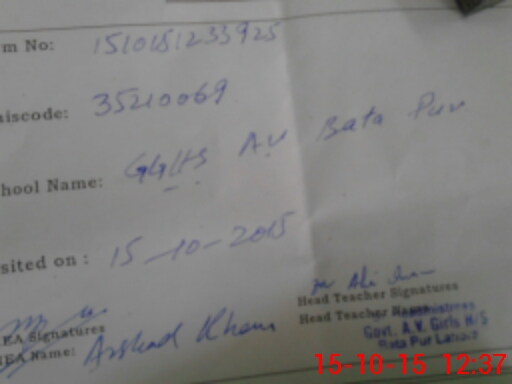 m No: 1510151233925
iscode: 35210069
hool Name: GGHS A.V Bata Pur
sited on : 15-10-2015
Head Teacher Signatures
EA Signatures
Head Teacher Name
Govt. A.V. Girls H/S
Bata Pur Lahore
EA Name: Arshad Khan
15-10-15 12:37